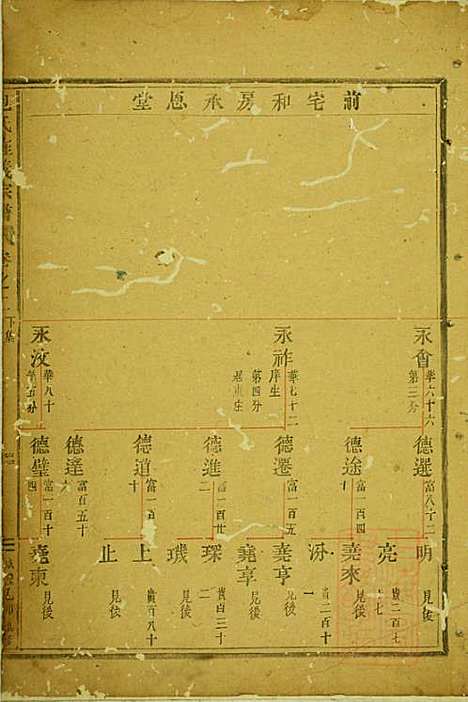 前宅和房承恩堂
永會
華六十六
第三分
永祚
華七十二
庠生
第四分
永汶
華八十
第五分
德選
德途
富一百四
德遷
富一百五
德進
富一百廿
二
德道
富一百
十
德達
富百五十
德壁
富一百十
四
明
見後
亮
貴二百七
十七
堯來
見後
沝
貴二百十
一
堯亨
見後
堯享
見後
琛
貴百三十
二
璣
見後
上
貴百八十
止
堯東
見後